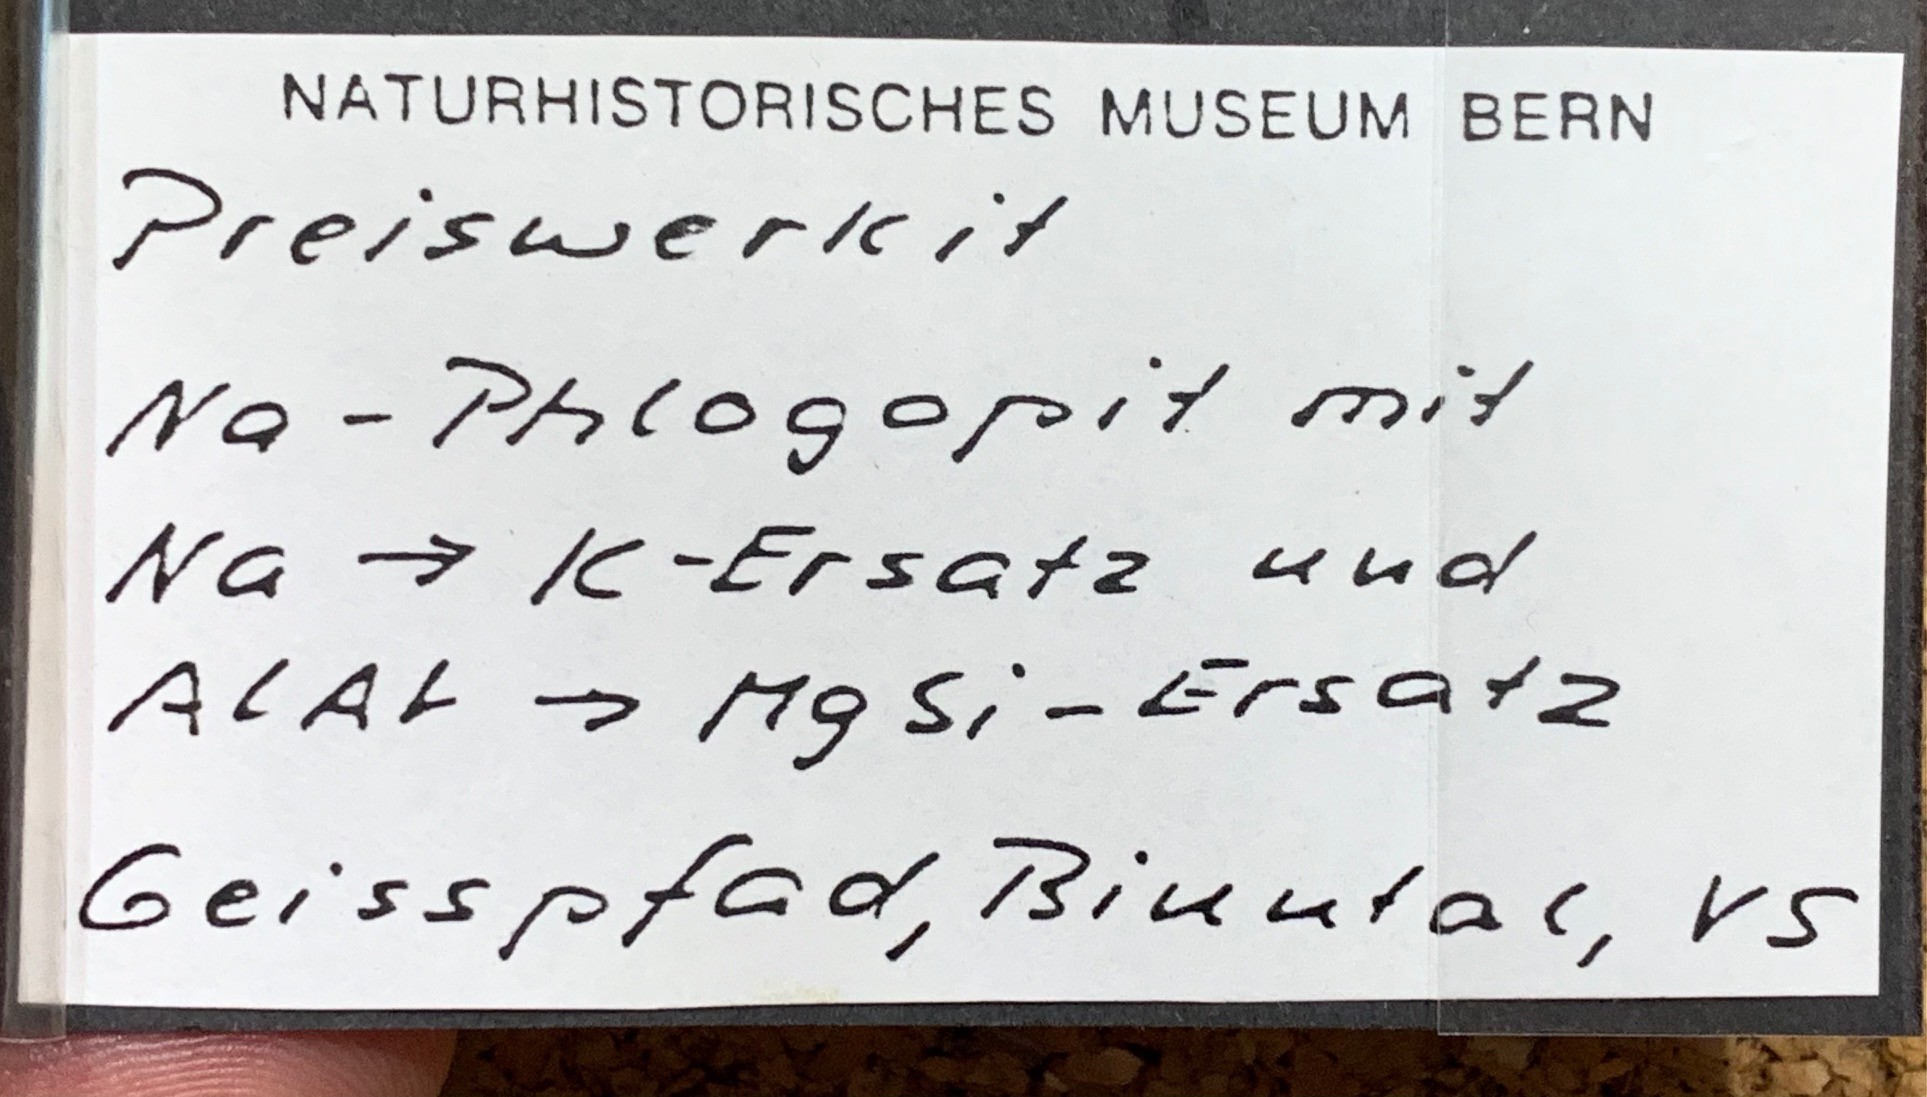 NATURHISTORISCHES MUSEUM BERN
Preiswerkit
Na-Phlogopit mit
Na → K-Ersatz und
AlAl → MgSi-Ersatz
Geisspfad, Binntal, VS